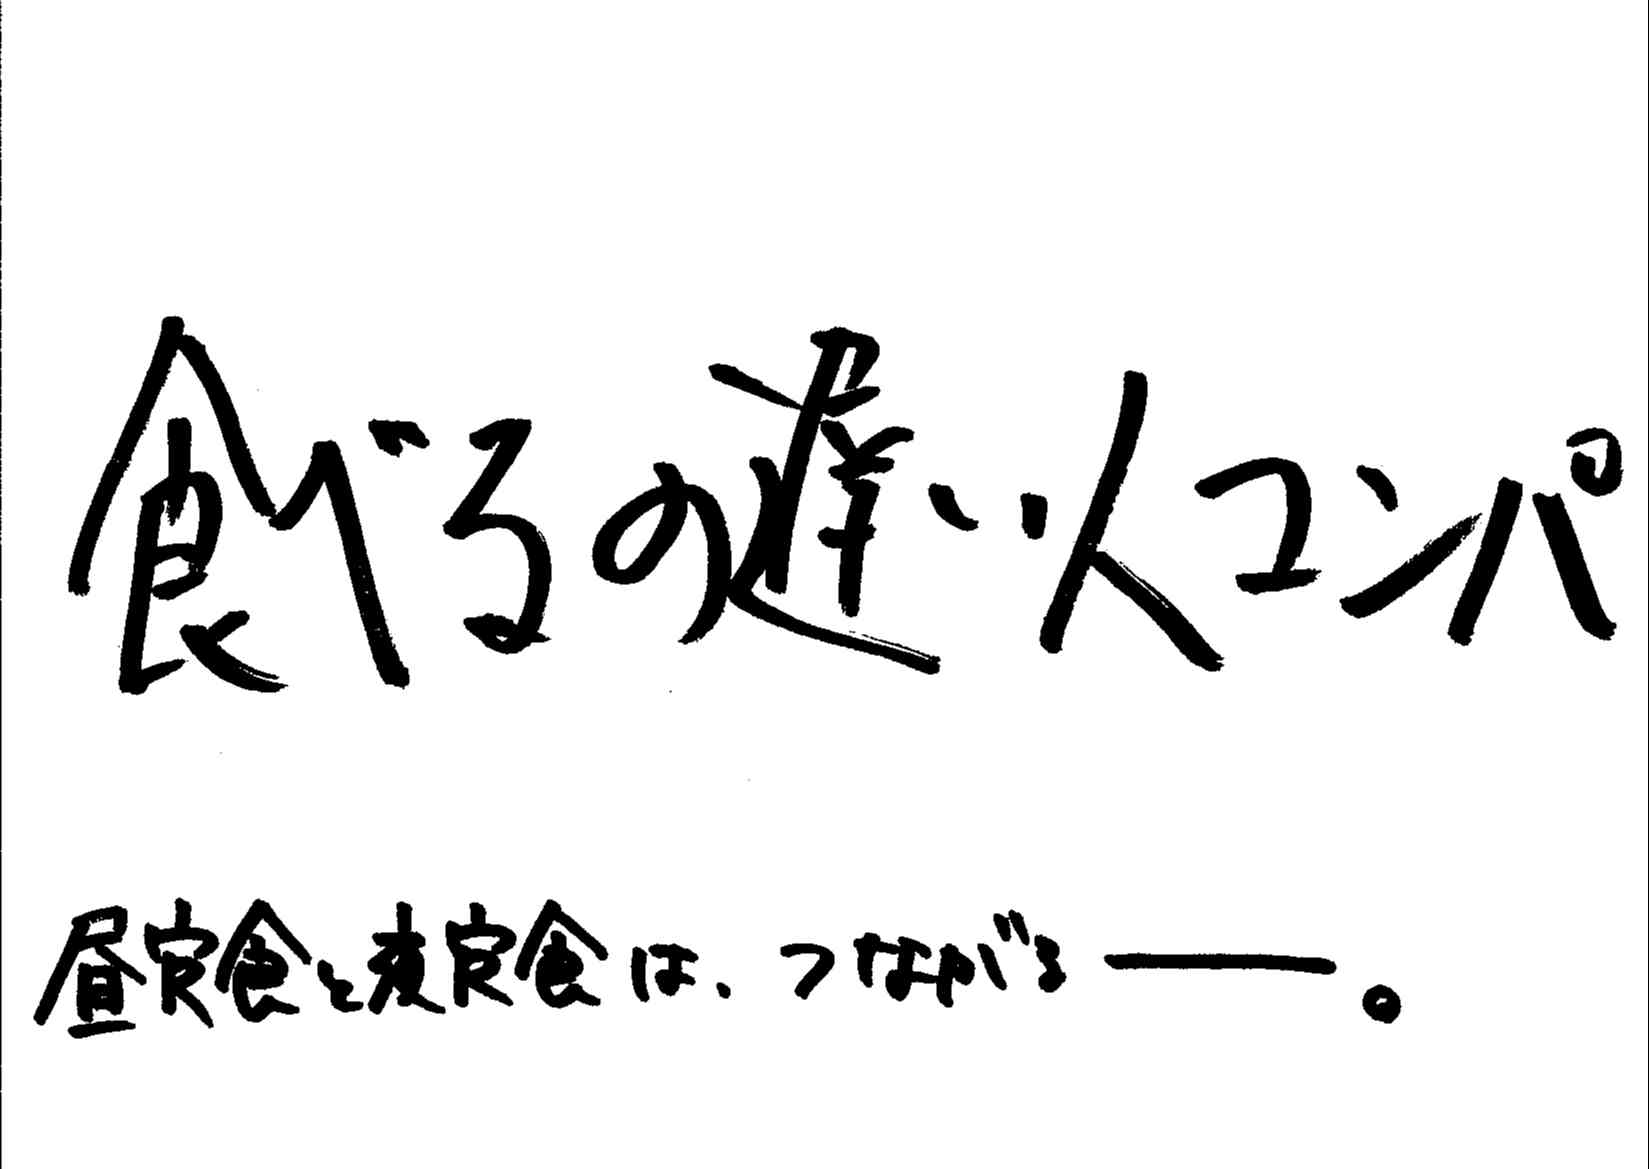 食べるの違い人コンパ
昼定食と夜定食は、つながる――。